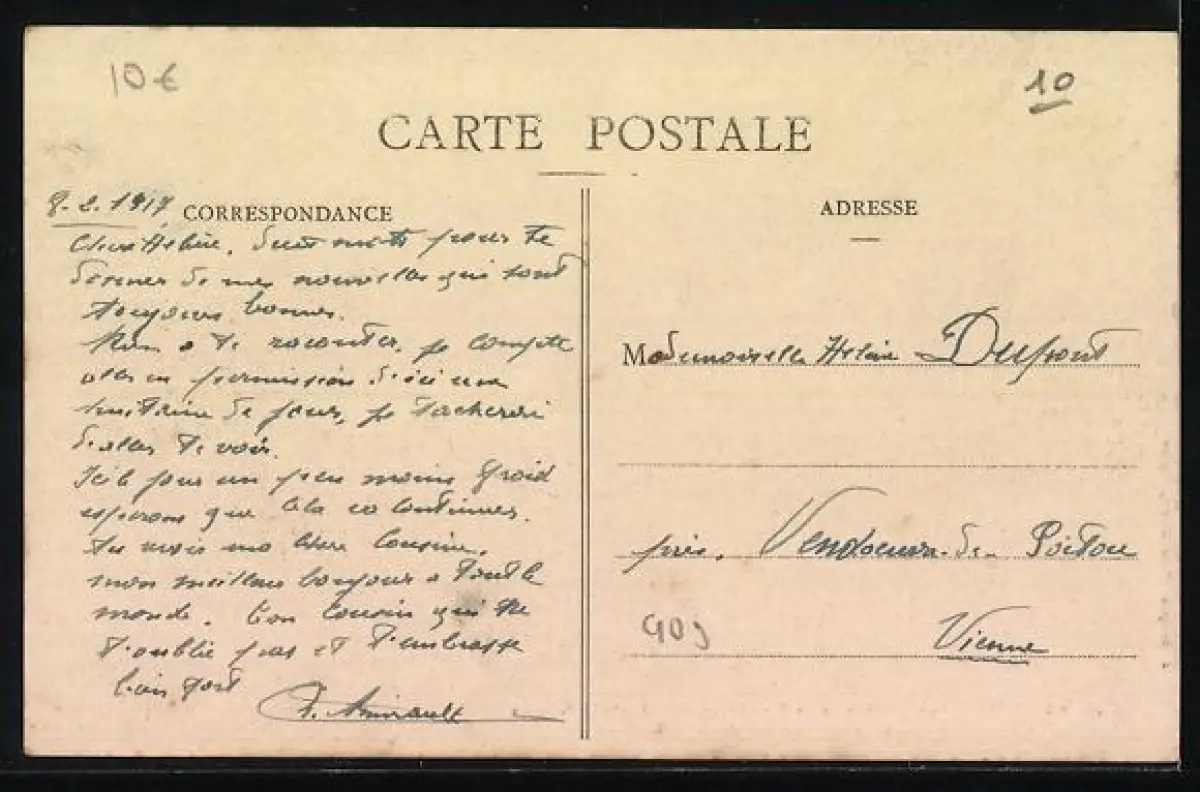 10€
10
CARTE POSTALE
8.2.1917 CORRESPONDANCE
Chère Hélène. Deux mots pour te
donner de mes nouvelles qui sont
toujours bonnes.
Rien a te raconter, je compte
aller en permission d'ici une
huitaine de jours, je tacherai
d'aller te voir.
Ici il fait un peu moins froid
esperons que cela va continuer.
ma chère Cousine.
mon meilleur bonjour a tout le
monde. Ton cousin qui ne
t'oublie pas et t'embrasse
bien fort
ADRESSE
Mademoiselle Hélène Dupont
près. Vendoeuvre-du-Poitou
Vienne